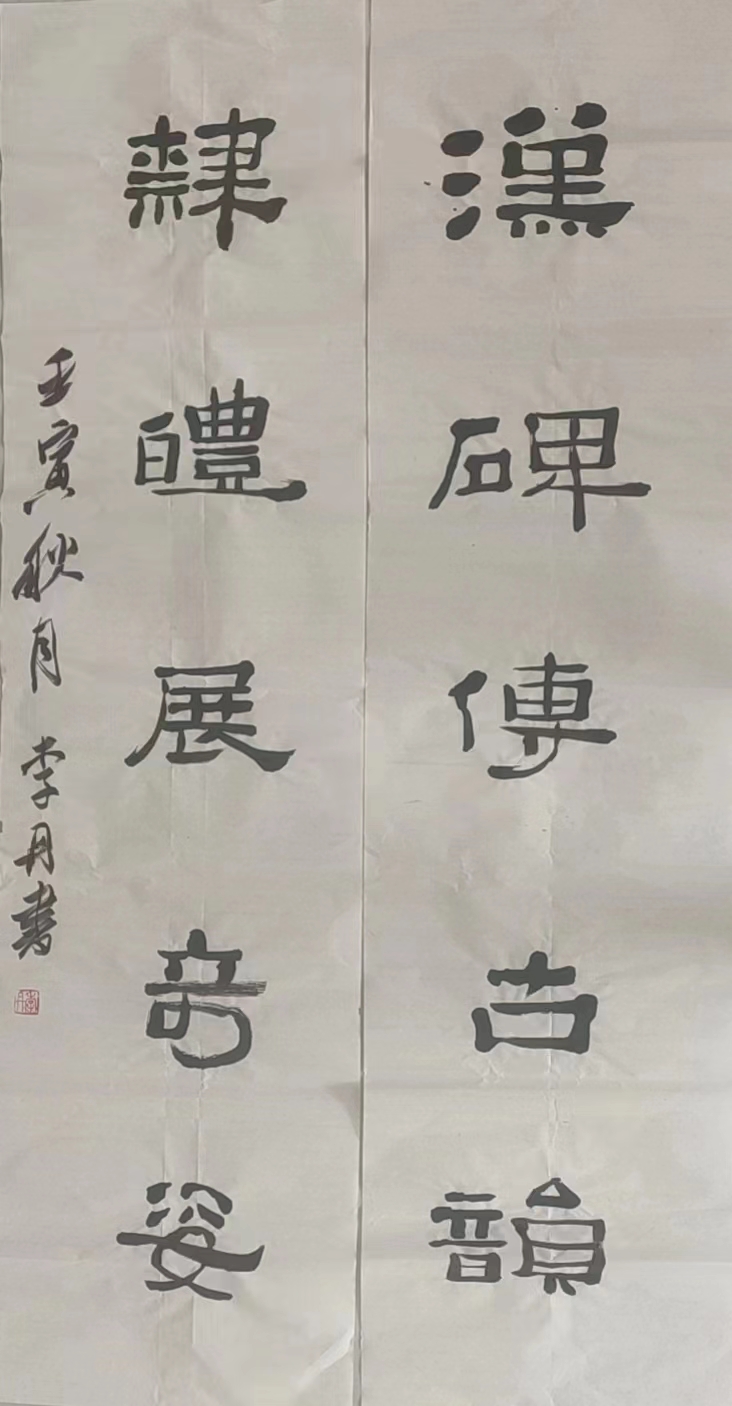 漢碑傳古韻
隸體展奇姿
壬寅秋月 李丹書
李丹